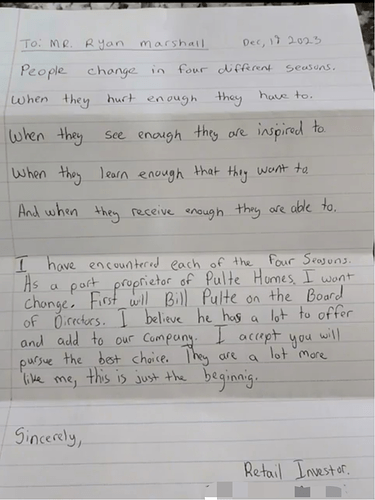 To: MR. Ryan marshall Dec, 17 2023
People change in four different seasons.
When they hurt enough they have to.
When they see enough they are inspired to
When they learn enough that they want to
And when they receive enough they are able to.
I have encountered each of the Four Seasons.
As a part proprietor of Pulte Homes, I want
change. First will Bill Pulte on the Board
of Directors. I believe he has a lot to offer
and add to our company. I accept you will
pursue the best choice. They are a lot more
like me, this is just the beginnig.
Sincerely,
Retail Investor.